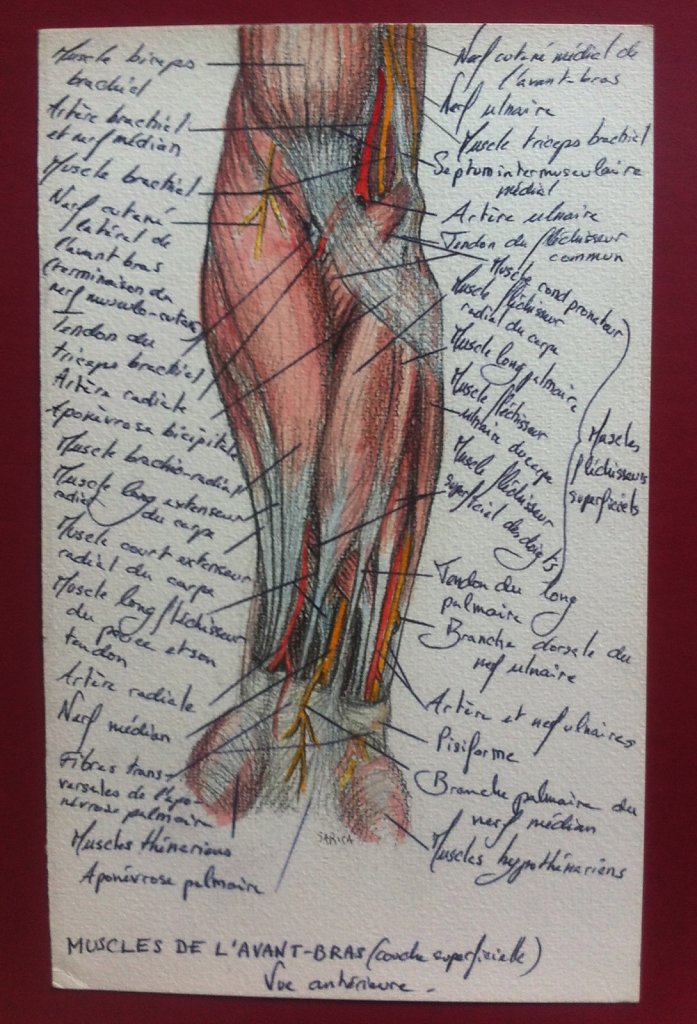 Muscle biceps
brachial
Artère brachial
et nerf médian
Muscle brachial
Nerf cutané
latéral de
l'avant bras
(terminaison du
nerf musculo-cutané
Tendon du
triceps brachial
Artère radiale
Aponévrose bicipitale
Muscle brachio-radial
Muscle long extenseur
radial du carpe
Muscle court extenseur
radial du carpe
Muscle long fléchisseur
du pouce et son
tendon
Artère radiale
Nerf médian
Fibres trans-
versales de l'apo-
névrose palmaire
Muscles thénariens
Aponévrose palmaire
Nerf cutané médial de
l'avant-bras
Nerf ulnaire
Muscle triceps brachial
Septum intermusculaire
médial
Artère ulnaire
Tendon du fléchisseur
commun
Muscle rond pronateur
Muscle fléchisseur
radial du carpe
Muscle long palmaire
Muscle fléchisseur
ulnaire du carpe
Muscle fléchisseur
superficiel des doigts
Muscles
fléchisseurs
superficiels
Tendon du long
palmaire
Branche dorsale du
nerf ulnaire
Artère et nerf ulnaires
Pisiforme
Branche palmaire du
nerf médian
Muscles hypothénariens
SARICA
MUSCLES DE L'AVANT-BRAS (couche superficielle)
Vue antérieure -